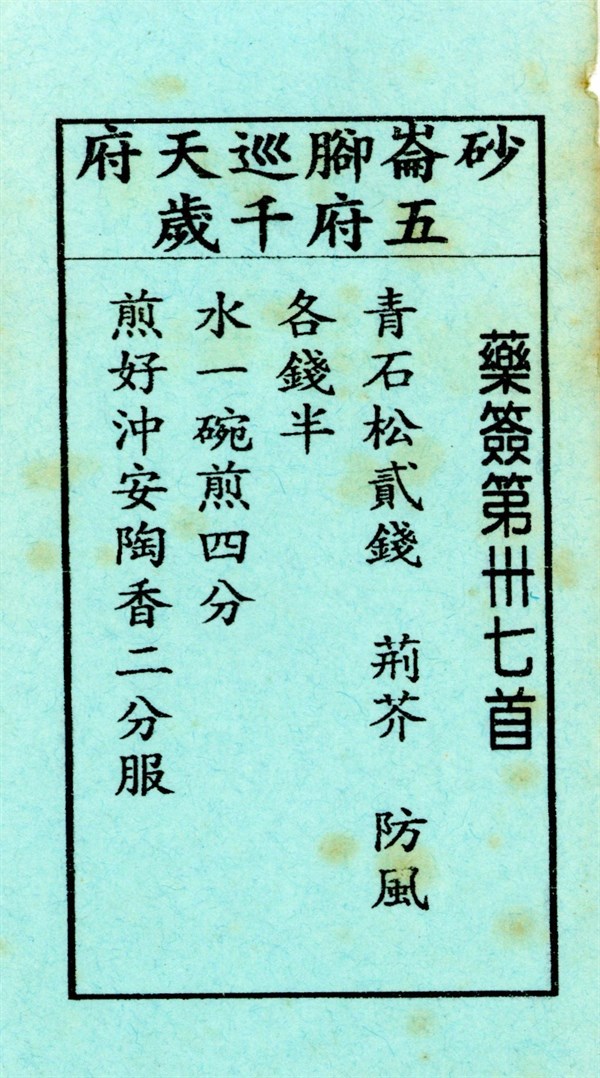 砂崙腳巡天府
五府千歲
藥簽第卌七首
青石松貳錢 荊芥 防風
各錢半
水一碗煎四分
煎好沖安陶香二分服